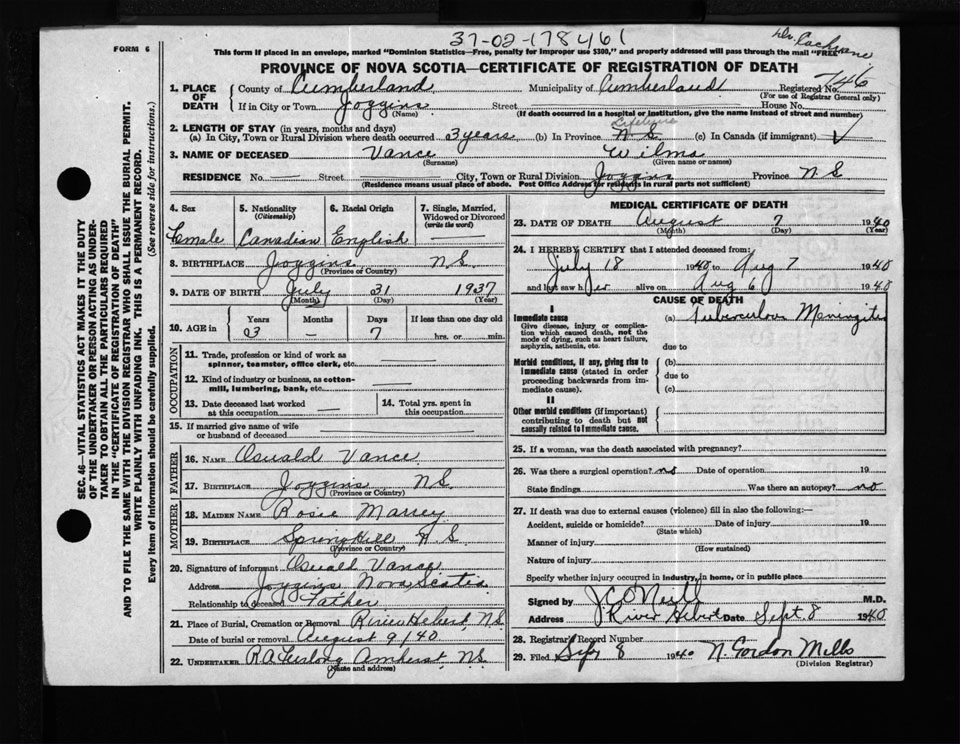 37-02-178461
Dr. Cochrane
FORM 6
This form if placed in an envelope, marked "Dominion Statistics—Free, penalty for improper use $300," and properly addressed will pass through the mail "FREE"
PROVINCE OF NOVA SCOTIA—CERTIFICATE OF REGISTRATION OF DEATH
746
1. PLACE OF DEATH County of Cumberland Municipality of Cumberland Registered No.
(For use of Registrar General only)
If in City or Town Joggins Street House No.
(Name) (If death occurred in a hospital or institution, give the name instead of street and number)
2. LENGTH OF STAY (in years, months and days)
Lifetime
(a) In City, Town or Rural Division where death occurred 3 years (b) In Province N.S. (c) In Canada (if immigrant) ✓
3. NAME OF DECEASED Vance Wilma
(Surname) (Given name or names)
RESIDENCE No. — Street — City, Town or Rural Division Joggins Province N S
(Residence means usual place of abode. Post Office Address for residents in rural parts not sufficient)
4. Sex 5. Nationality (Citizenship) 6. Racial Origin 7. Single, Married, Widowed or Divorced (write the word)
Female Canadian English —
8. BIRTHPLACE Joggins N.S.
(Province or Country)
9. DATE OF BIRTH July 31 1937
(Month) (Day) (Year)
10. AGE in Years Months Days If less than one day old
03 — 7 hrs. or min.
OCCUPATION
11. Trade, profession or kind of work as spinner, teamster, office clerk, etc. —
12. Kind of industry or business, as cotton-mill, lumbering, bank, etc. —
13. Date deceased last worked at this occupation — 14. Total yrs. spent in this occupation
15. If married give name of wife or husband of deceased
FATHER
16. NAME Oswald Vance
17. BIRTHPLACE Joggins N.S.
(Province or Country)
MOTHER
18. MAIDEN NAME Rosie
19. BIRTHPLACE Springhill N.S.
(Province or Country)
20. Signature of informant Oswald Vance
Address Joggins Nova Scotia
Relationship to deceased Father
21. Place of Burial, Cremation or Removal River Hebert, N.S.
Date of burial or removal August 9/40
22. UNDERTAKER R A Furlong Amherst, N.S.
(Name and address)
MEDICAL CERTIFICATE OF DEATH
23. DATE OF DEATH August 7 1940
(Month) (Day) (Year)
24. I HEREBY CERTIFY that I attended deceased from:
July 18 1940 to Aug 7 1940
and last saw her alive on Aug 6 1940
CAUSE OF DEATH
I
Immediate cause (a) Tuberculous Meningitis
Give disease, injury or complication which caused death, not the mode of dying, such as heart failure, asphyxia, asthenia, etc.
due to
Morbid conditions, if any, giving rise to immediate cause (stated in order proceeding backwards from immediate cause).
(b)
due to
(c)
II
Other morbid conditions (if important) contributing to death but not causally related to immediate cause.
25. If a woman, was the death associated with pregnancy?
26. Was there a surgical operation? no Date of operation 19
State findings Was there an autopsy? no
27. If death was due to external causes (violence) fill in also the following:—
Accident, suicide or homicide? Date of injury 19
(State which)
Manner of injury
(How sustained)
Nature of injury
Specify whether injury occurred in industry, in home, or in public place
Signed by J C O'Neill M.D.
Address River Hebert Date Sept 8 1940
28. Registrar's Record Number
29. Filed Sep 8 1940 N. Gordon Mills
(Division Registrar)
SEC. 46—VITAL STATISTICS ACT MAKES IT THE DUTY
OF THE UNDERTAKER OR PERSON ACTING AS UNDER-
TAKER TO OBTAIN ALL THE PARTICULARS REQUIRED
IN THE "CERTIFICATE OF REGISTRATION OF DEATH"
AND TO FILE THE SAME WITH THE DIVISION REGISTRAR WHO SHALL ISSUE THE BURIAL PERMIT.
WRITE PLAINLY WITH UNFADING INK. THIS IS A PERMANENT RECORD.
Every item of information should be carefully supplied. (See reverse side for instructions.)